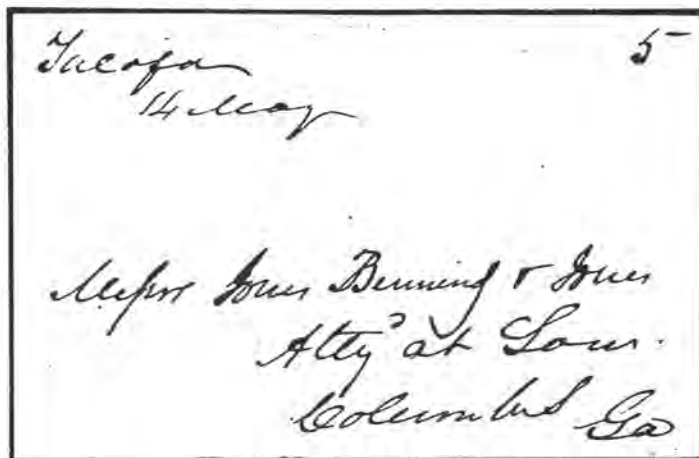 Tacopa 5
14 May
Messrs Jones Benning & Jones
Attys at Law.
Columbus Ga